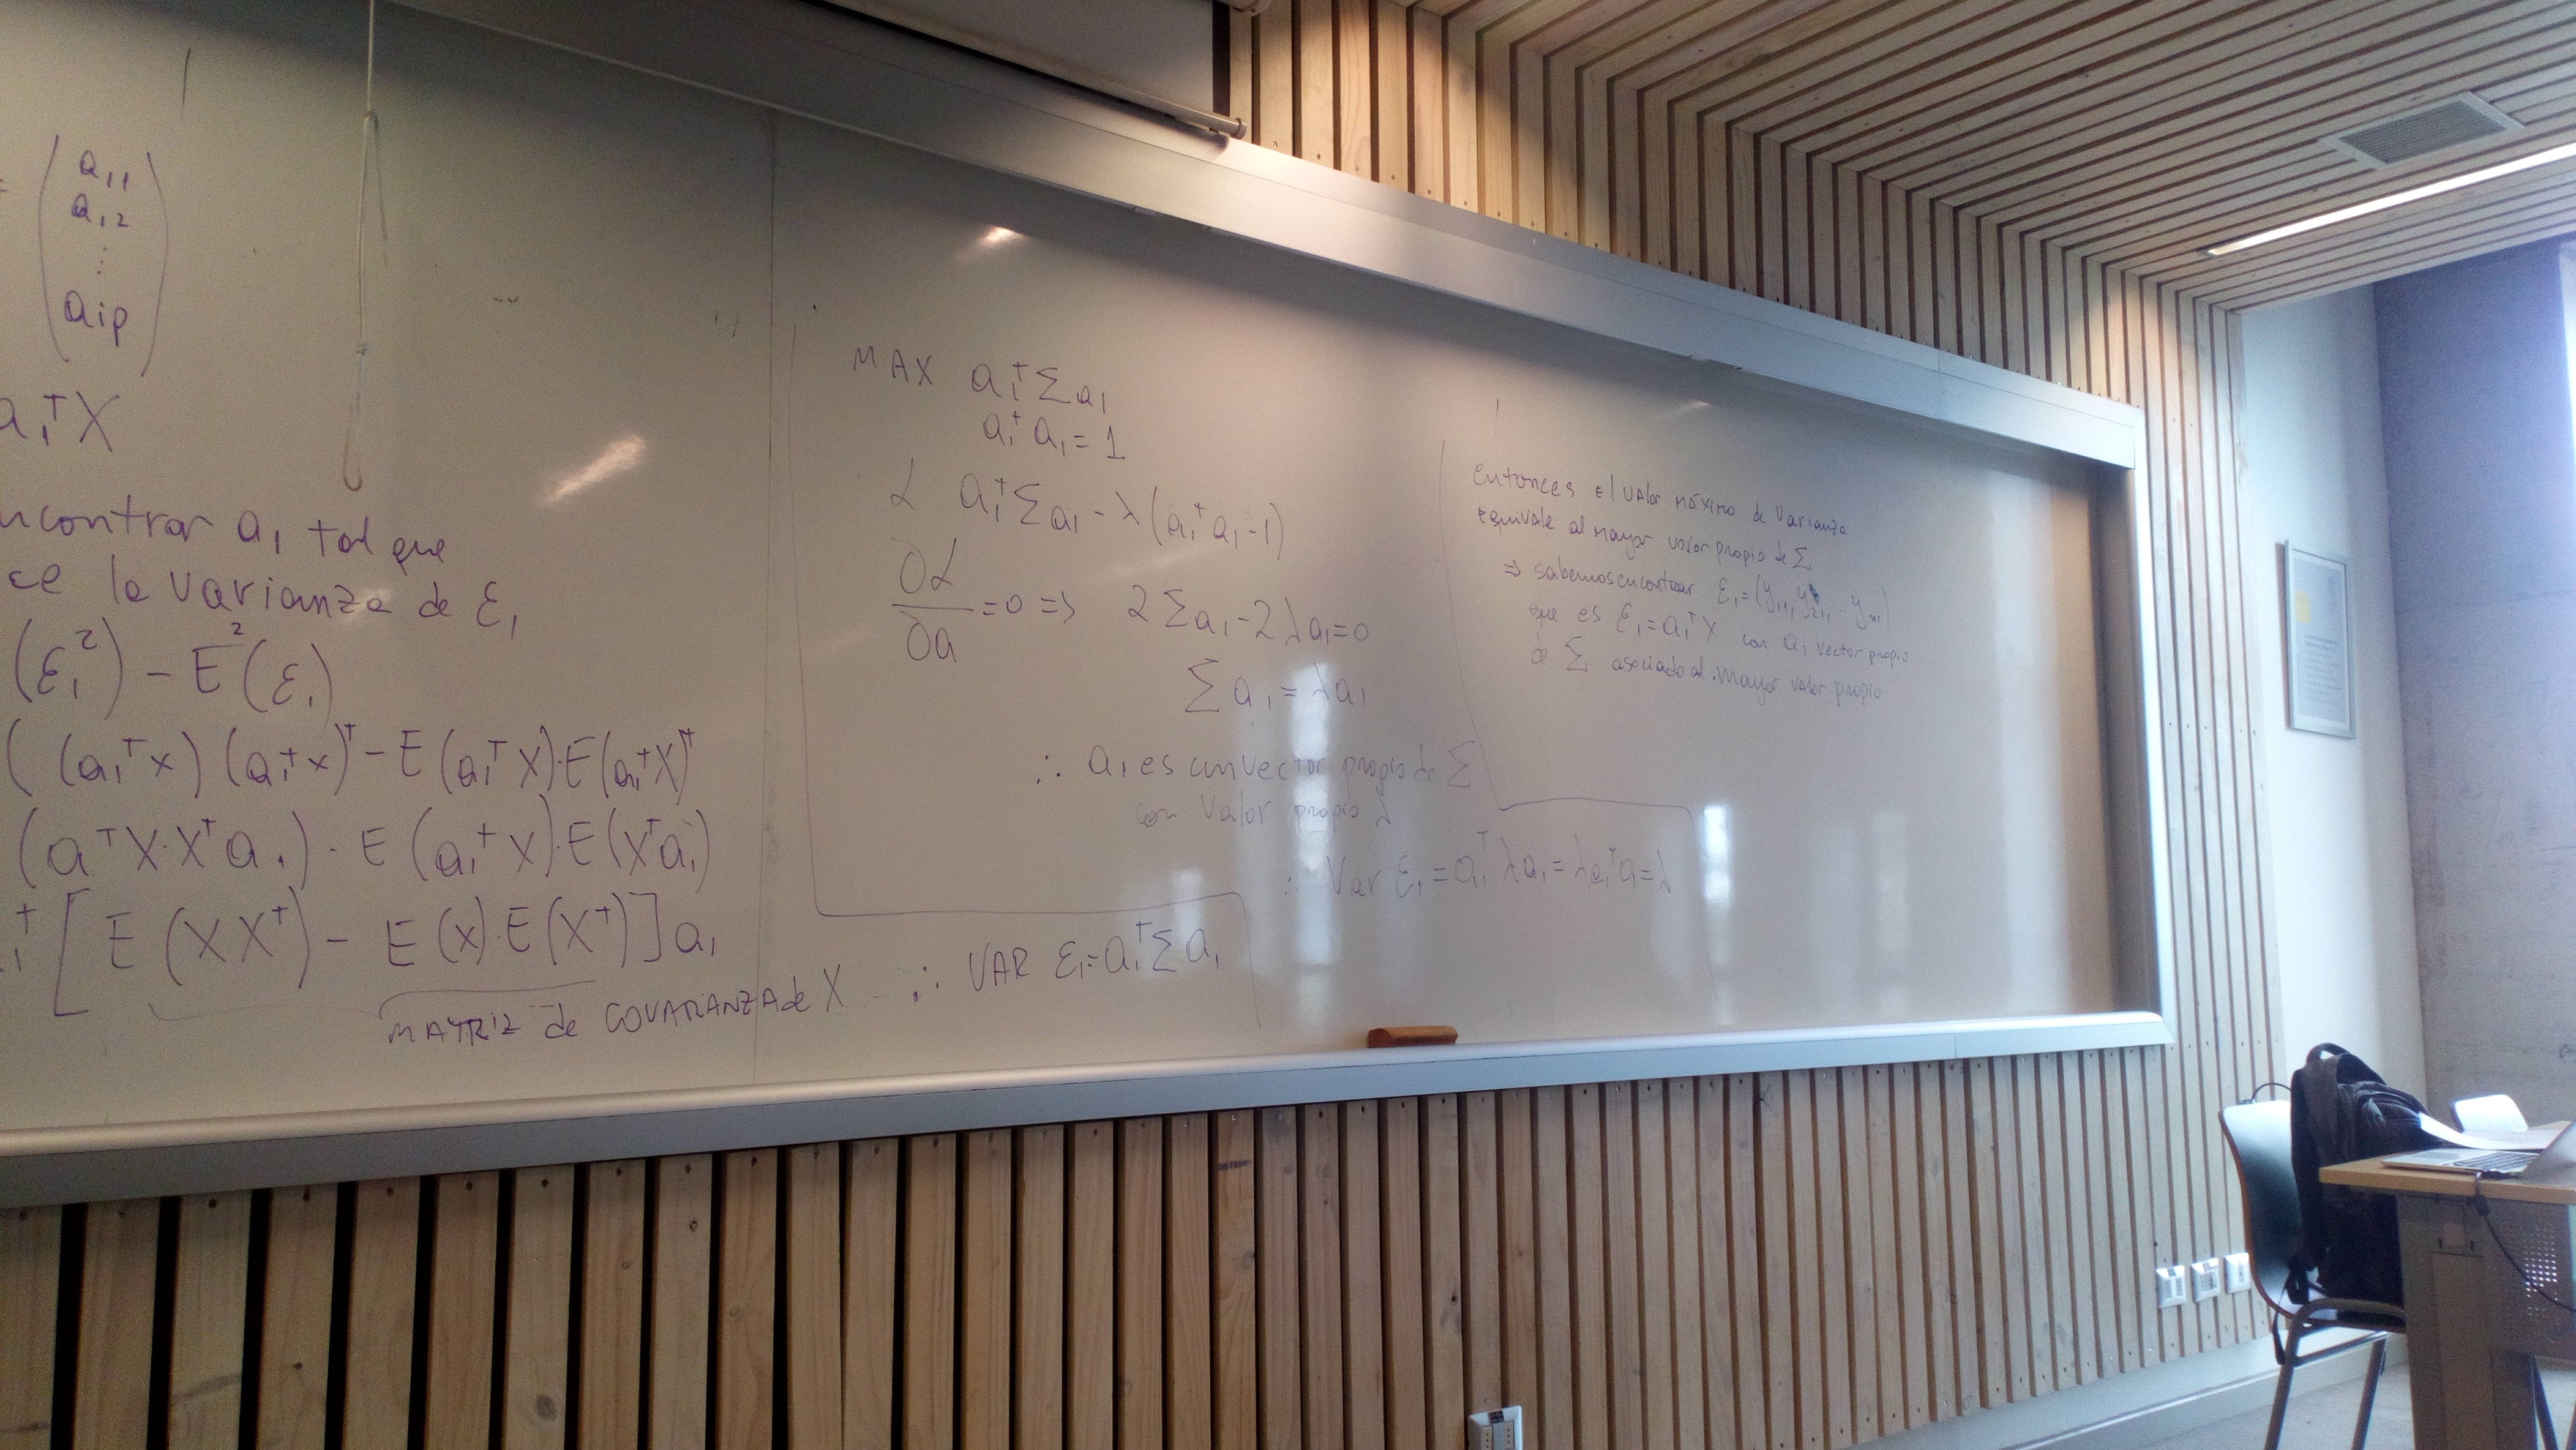 = ( a₁₁
a₁₂
⋮
a₁p )
a₁ᵀX
ncontrar a₁ tal que
ce la varianza de ε₁
(ε₁²) - E²(ε₁)
((a₁ᵀx)(a₁ᵀx)ᵀ - E(a₁ᵀX)·E(a₁ᵀX)ᵀ
(aᵀX·Xᵀa₁) - E(a₁ᵀX)·E(Xᵀa₁)
₁ᵀ[E(XXᵀ) - E(x)·E(Xᵀ)]a₁
MATRIZ de COVARIANZA de X
∴ VAR ε₁ = a₁ᵀΣa₁
MAX a₁ᵀΣa₁
a₁ᵀa₁ = 1
ℒ a₁ᵀΣa₁ - λ(a₁ᵀa₁ - 1)
∂ℒ/∂a = 0 => 2Σa₁ - 2λa₁ = 0
Σa₁ = λa₁
∴ a₁ es un vector propio de Σ
con valor propio λ
∴ Var ε₁ = a₁ᵀλa₁ = λa₁ᵀa₁ = λ
entonces El valor máximo de varianza
equivale al mayor valor propio de Σ
⇒ sabemos encontrar ε₁ = (y₁₁, y₂₁, … yₙ₁)
que es ε₁ = a₁ᵀX con a₁ vector propio
de Σ asociado al mayor valor propio